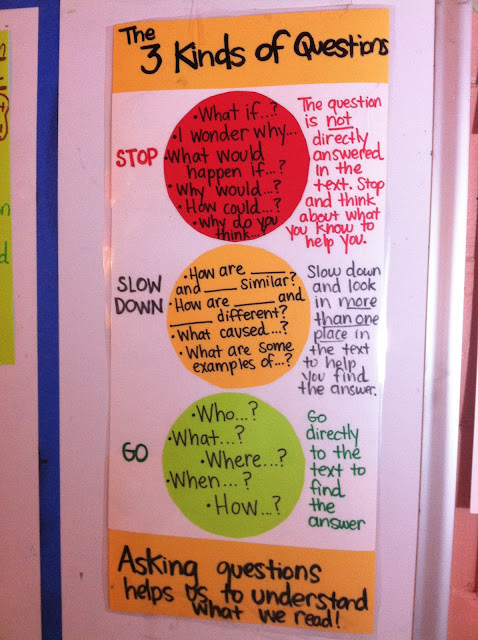 The
3 Kinds of Questions
STOP
• What if...?
• I wonder why...
• What would
happen if...?
• Why would...?
• How could...?
• Why do you
think...?
The question
is not
directly
answered
in the
text. Stop
and think
about what
you know to
help you.
SLOW
DOWN
• How are ____
and ____ similar?
• How are ____ and
____ different?
• What caused...?
• What are some
examples of...?
Slow down
and look
in more
than one
place in
the text
to help
you find
the answer.
GO
• Who...?
• What...?
• Where...?
• When...?
• How...?
Go
directly
to the
text to
find
the
answer
Asking questions
helps us to understand
what we read!